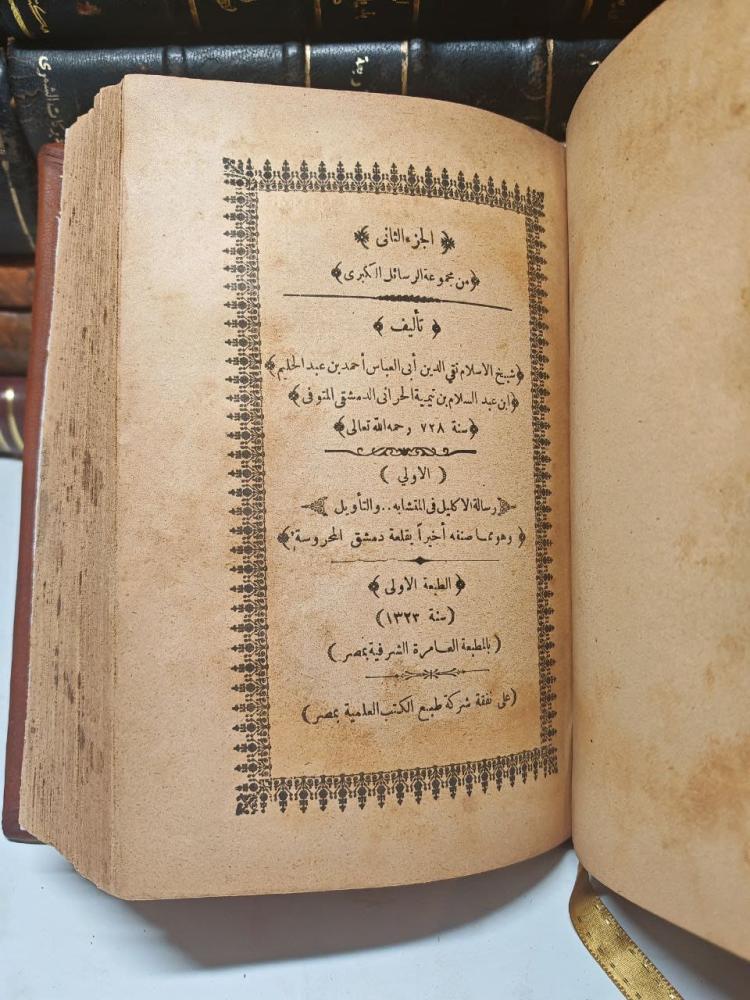 الجزء الثاني
﴿من مجموعة الرسائل الكبرى﴾
﴿تأليف﴾
﴿شيخ الاسلام تقي الدين أبي العباس أحمد بن عبد الحليم﴾
﴿ابن عبد السلام بن تيمية الحراني الدمشقي المتوفى﴾
﴿سنة ٧٢٨ رحمه الله تعالى﴾
(الأولي)
رسالة الاكليل في المتشابه..والتأويل
﴿وهو مما صنفه أخيراً بقلعة دمشق المحروسة﴾
﴿الطبعة الاولى﴾
(سنة ١٣٢٣)
(بالمطبعة العامرة الشرفية بمصر)
(على نفقة شركة طبع الكتب العلمية بمصر)